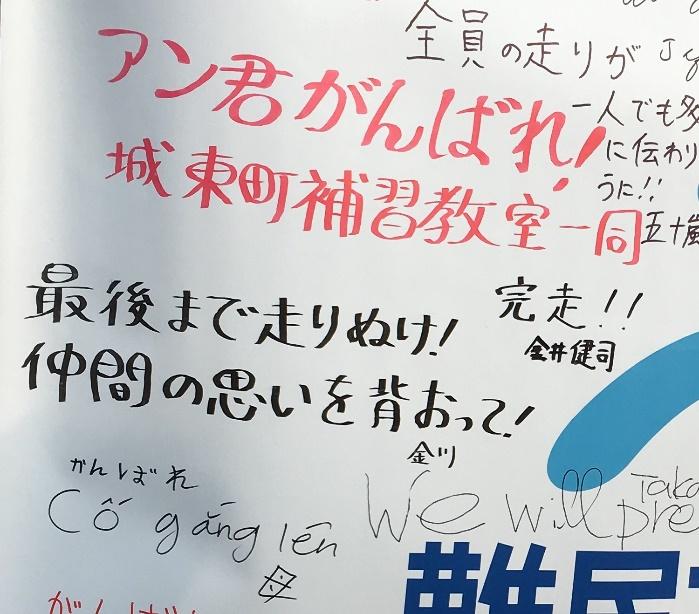 全員の走りが
一人でも多
に伝わり
うに!!
五十嵐
アン君がんばれ!
城東町補習教室一同
最後まで走りぬけ!
仲間の思いを背おって!
金川
完走!!
金井健司
がんばれ
Cố gắng lên
母
We will pre
Taka
難民
がんばれ